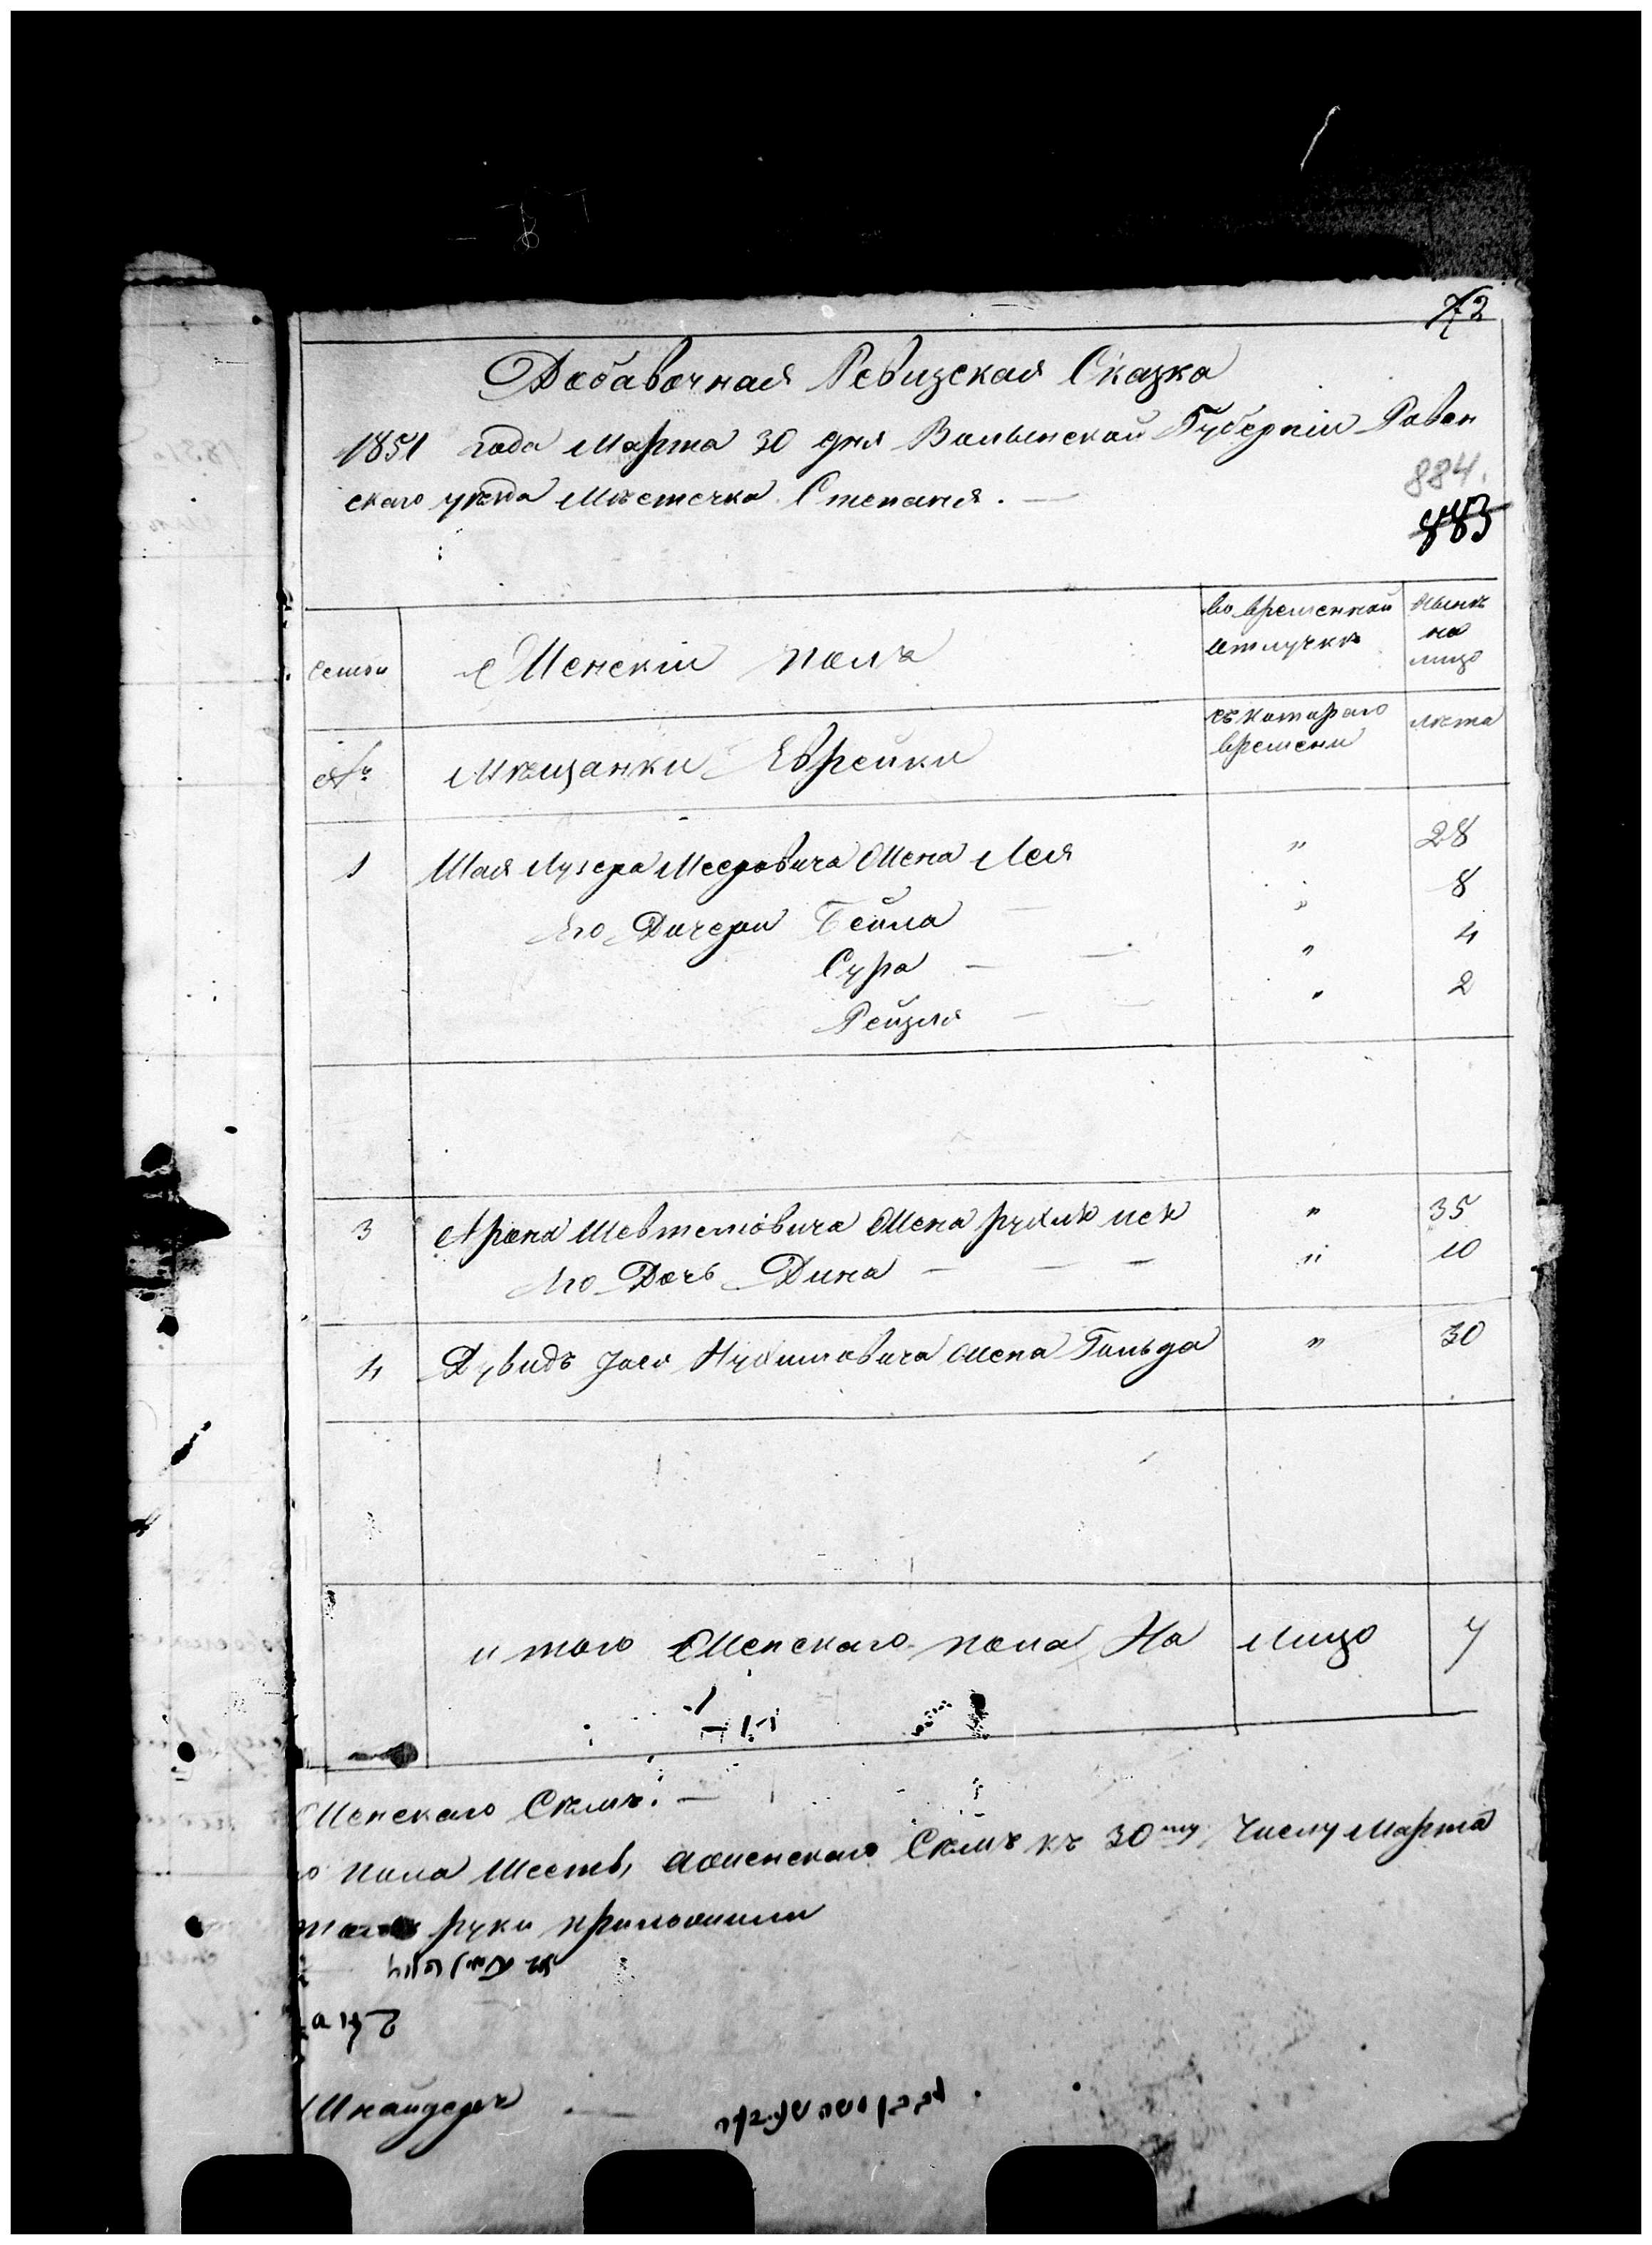 72
Добавочная Ревизская Сказка
1851 года Марта 30 дня Волынской Губерніи Ровен
скаго уѣзда Мѣстечка Степаня. —
884.
883
Семьи
Женскій полъ
во временной отлучкѣ
нынѣ на лицо
№
Мѣщанки Еврейки
съ котораго времени
лѣта
1 Шая Лузера Мееровича Жена Лея " 28
Его Дочери Бейла — " 8
Сура — — " 4
Рейзля — — " 2
3 Арона Жена " 35
Его Дочь Дина — — — " 10
4 Дувидъ Жена Гольда " 30
и того Женскаго пола На лицо 7
Женскаго Семь. —
о пола Шесть, аженскаго Семъ къ 30му Числу Марта
руки приложили
Шнайдеръ —